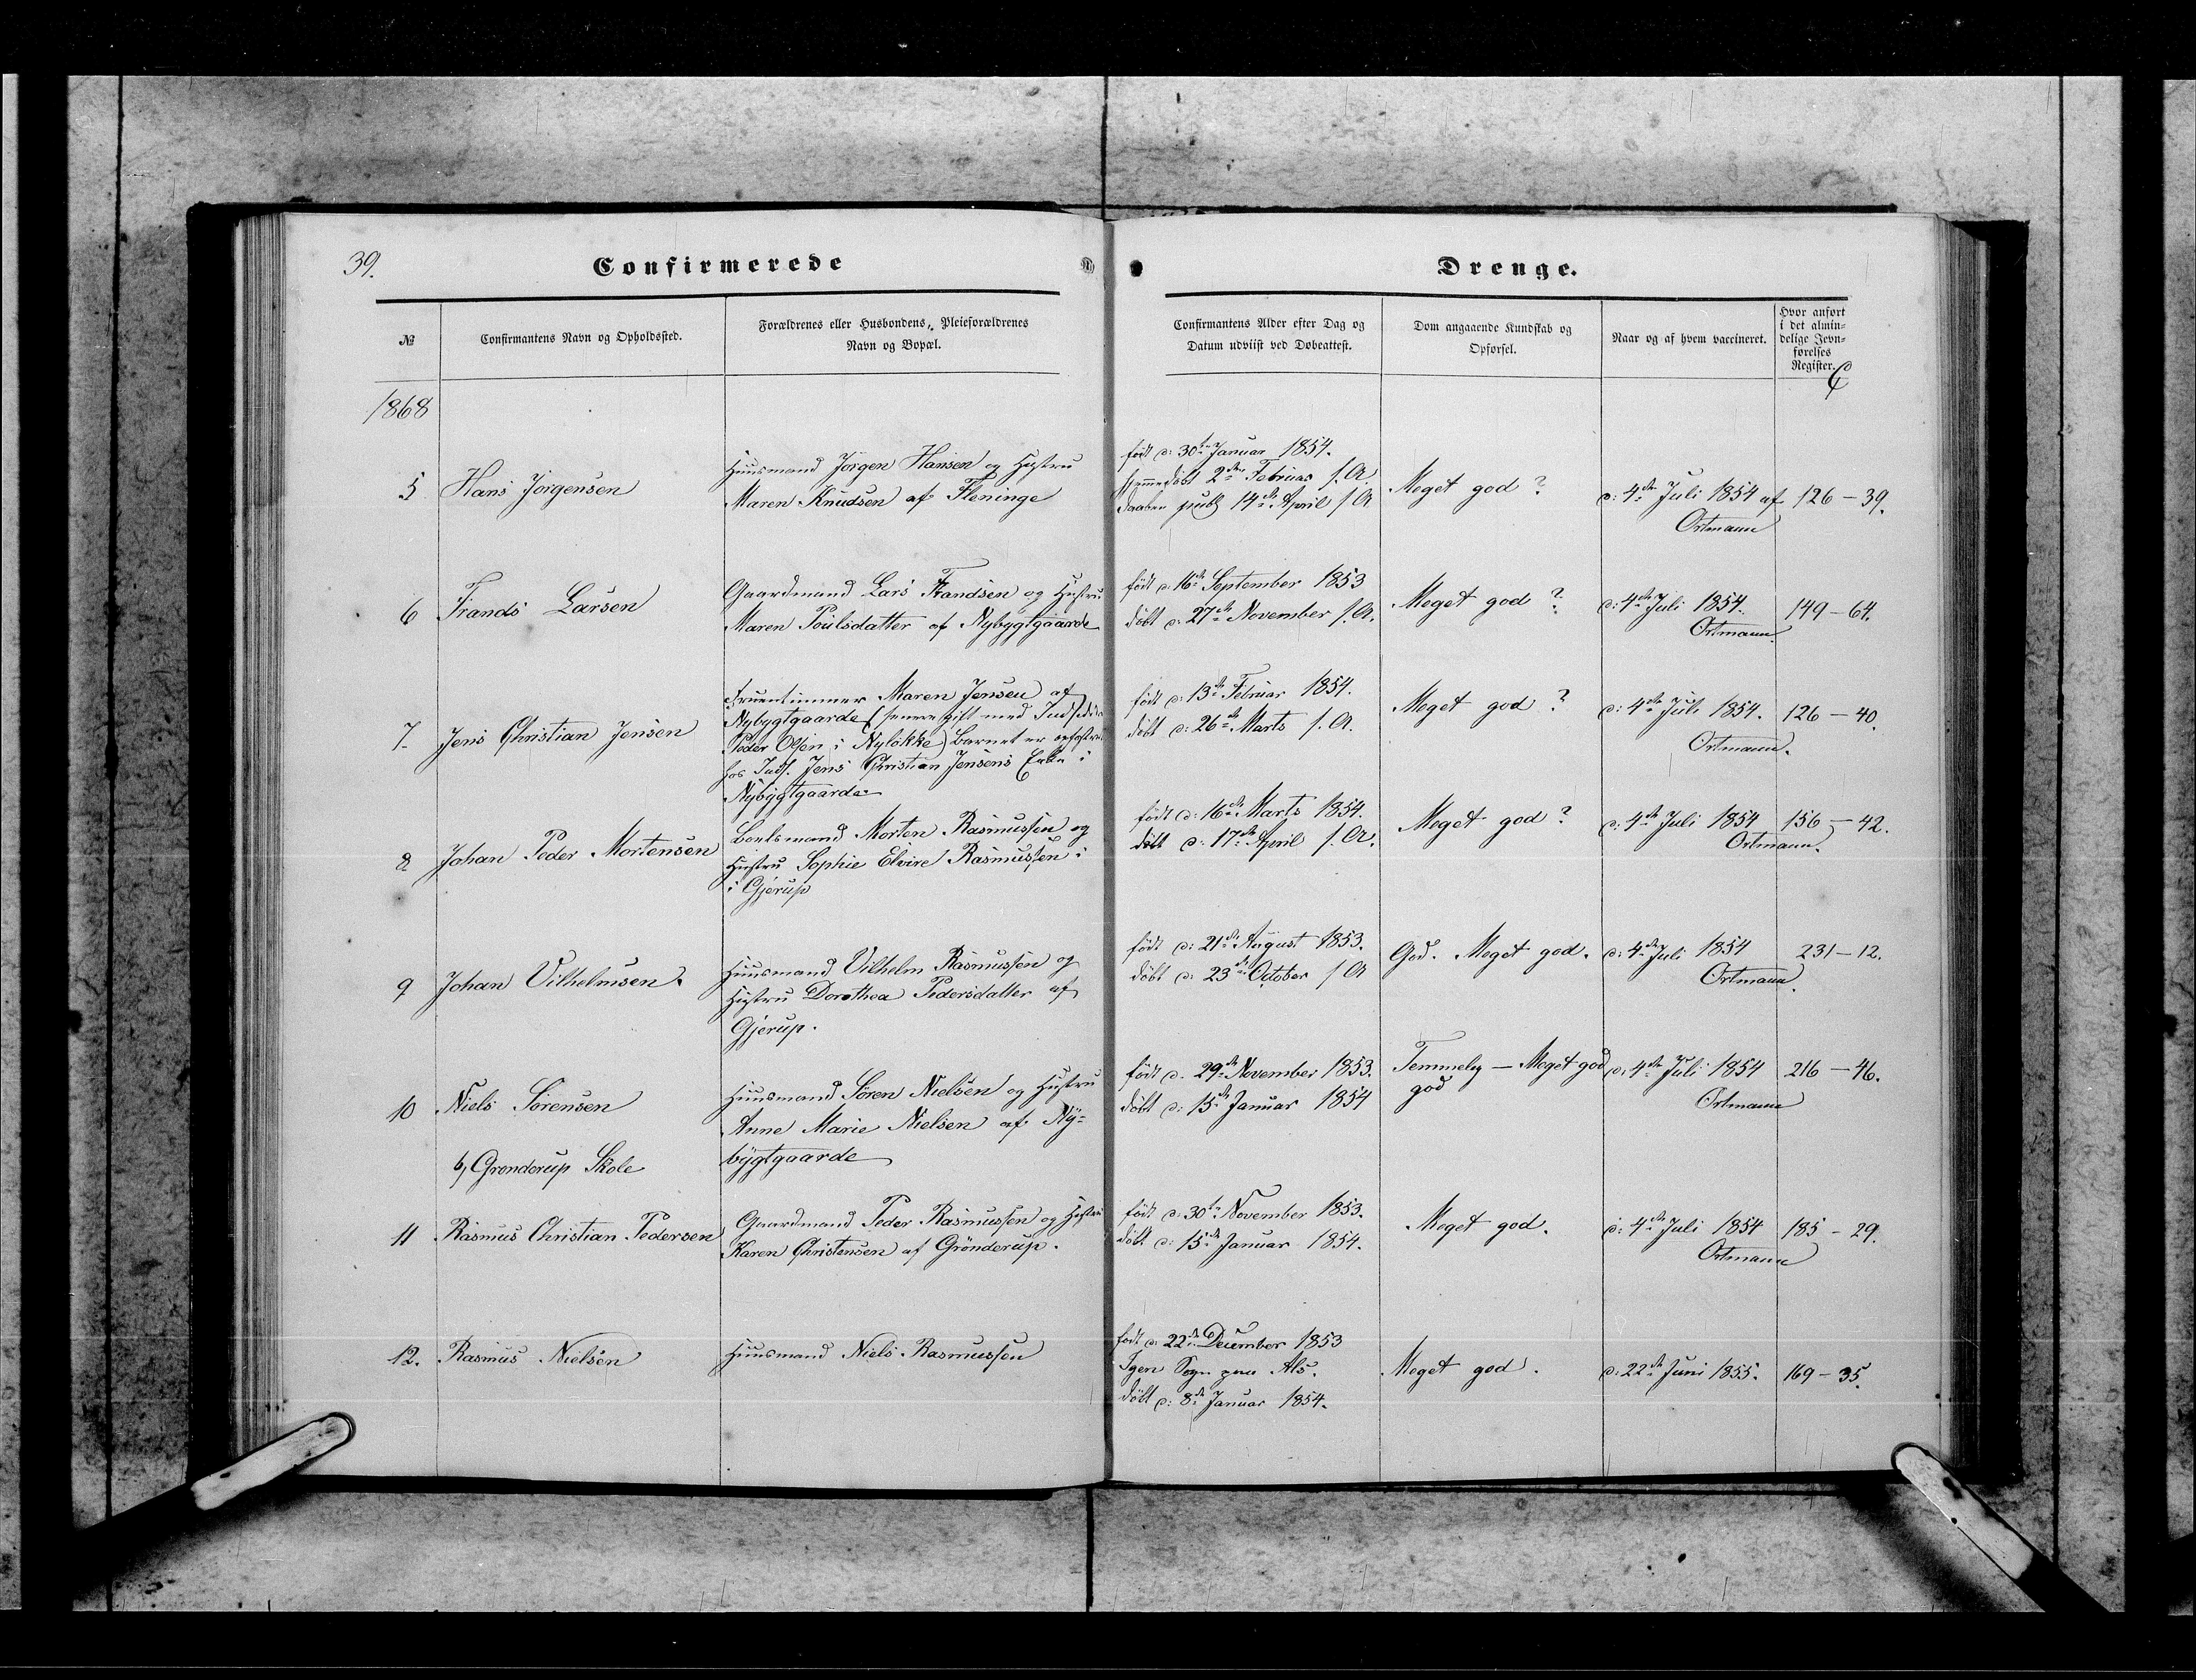 39.
Confirmerede
Drenge.
№
Confirmantens Navn og Opholdssted.
Forældrenes eller Husbondens, Pleieforældrenes
Navn og Bopæl.
Confirmantens Alder efter Dag og
Datum udviist ved Døbeattest.
Dom angaaende Kundskab og
Opførsel.
Naar og af hvem vaccineret.
Hvor anført
i det almin-
delige Jevn-
førelses
Register.
C
1868
5
Hans Jørgensen
Huusmand Jørgen Hansen og Hustru
Maren Knudsen af Fleninge
født d: 30te Januar 1854.
hjemmedøbt 2den Februar s. A.
Daaben publ 14de April s A
Meget god ?
d: 4de Juli 1854 af
Ortmann
126 – 39.
6
Frands Larsen
Gaardmand Lars Frandsen og Hustru
Maren Poulsdatter af Nybygtgaarde
født d. 16de September 1853
døbt d: 27de November s. A.
Meget god ?
d: 4de Juli 1854.
Ortmann.
149 – 64.
7
Jens Christian Jensen
Fruentimmer Maren Jensen af
Nybygtgaarde (senere gift med Indsidder
Peder Olsen i Nyløkke) Barnet er opfostret
hos Inds. Jens Christian Jensens Enke i
Nybygtgaarde
født d: 13de Februar 1854.
døbt d: 26de Marts s. A.
Meget god ?
d: 4de Juli 1854.
Ortmann.
126 – 40.
8
Johan Peder Mortensen
Boelsmand Morten Rasmussen og
Hustru Sophie Elvire Rasmussen i
i Gjerup
født d: 16de Marts 1854.
døbt d: 17de April s. A.
Meget god ?
d: 4de Juli 1854
Ortmann.
156 – 42.
9
Johan Vilhelmsen.
Huusmand Vilhelm Rasmussen og
Hustru Dorothea Pedersdatter af
Gjerup.
født d: 21de August 1853.
døbt d: 23de October s A
God. Meget god.
d: 4de Juli 1854
Ortmann.
231 – 12.
10
Niels Sørensen
Huusmand Søren Nielsen og Hustru
Anne Marie Nielsen af Ny-
bygtgaarde
født d. 29de November 1853.
døbt d: 15de Januar 1854
Temmelig – Meget god
god
d: 4de Juli 1854
Ortmann
216 – 46.
b, Grønderup Skole
11
Rasmus Christian Pedersen
Gaardmand Peder Rasmussen og Hustru
Karen Christensen af Grønderup.
født d: 30te November 1853.
døbt d: 15de Januar 1854.
Meget god.
d: 4de Juli 1854
Ortmann
185 – 29.
12.
Rasmus Nielsen
Huusmand Niels Rasmussen
født d: 22de December 1853
Sogn paa Als.
døbt d: 8de Januar 1854.
Meget god.
d: 22de Juni 1855.
169 – 35.